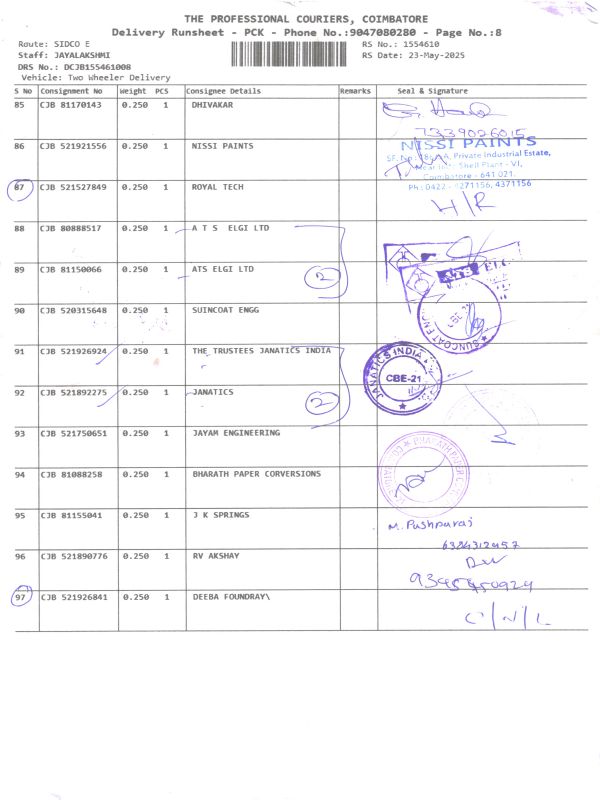 THE PROFESSIONAL COURIERS, COIMBATORE
Delivery Runsheet - PCK - Phone No.:9047080280 - Page No.:8
Route: SIDCO E RS No.: 1554610
Staff: JAYALAKSHMI RS Date: 23-May-2025
DRS No.: DCJB155461008
Vehicle: Two Wheeler Delivery
S No Consignment No Weight PCS Consignee Details Remarks Seal & Signature
85 CJB 81170143 0.250 1 DHIVAKAR
7339026015
86 CJB 521921556 0.250 1 NISSI PAINTS NISSI PAINTS
Private Industrial Estate,
Shell Plant - VI,
Coimbatore - 641 021.
87 CJB 521527849 0.250 1 ROYAL TECH Ph.: 0422 - 4271156, 4371156
H/R
88 CJB 80888517 0.250 1 A T S ELGI LTD
89 CJB 81150066 0.250 1 ATS ELGI LTD 2 ATS ELG
90 CJB 520315648 0.250 1 SUINCOAT ENGG
SUNCOAT ENG
91 CJB 521926924 0.250 1 THE TRUSTEES JANATICS INDIA JANATICS INDIA
CBE-21
92 CJB 521892275 0.250 1 JANATICS 2
93 CJB 521750651 0.250 1 JAYAM ENGINEERING
94 CJB 81088258 0.250 1 BHARATH PAPER CORVERSIONS
95 CJB 81155041 0.250 1 J K SPRINGS M. Pushparaj
6384312957
96 CJB 521890776 0.250 1 RV AKSHAY
9345450924
97 CJB 521926841 0.250 1 DEEBA FOUNDRAY\
C/N/L